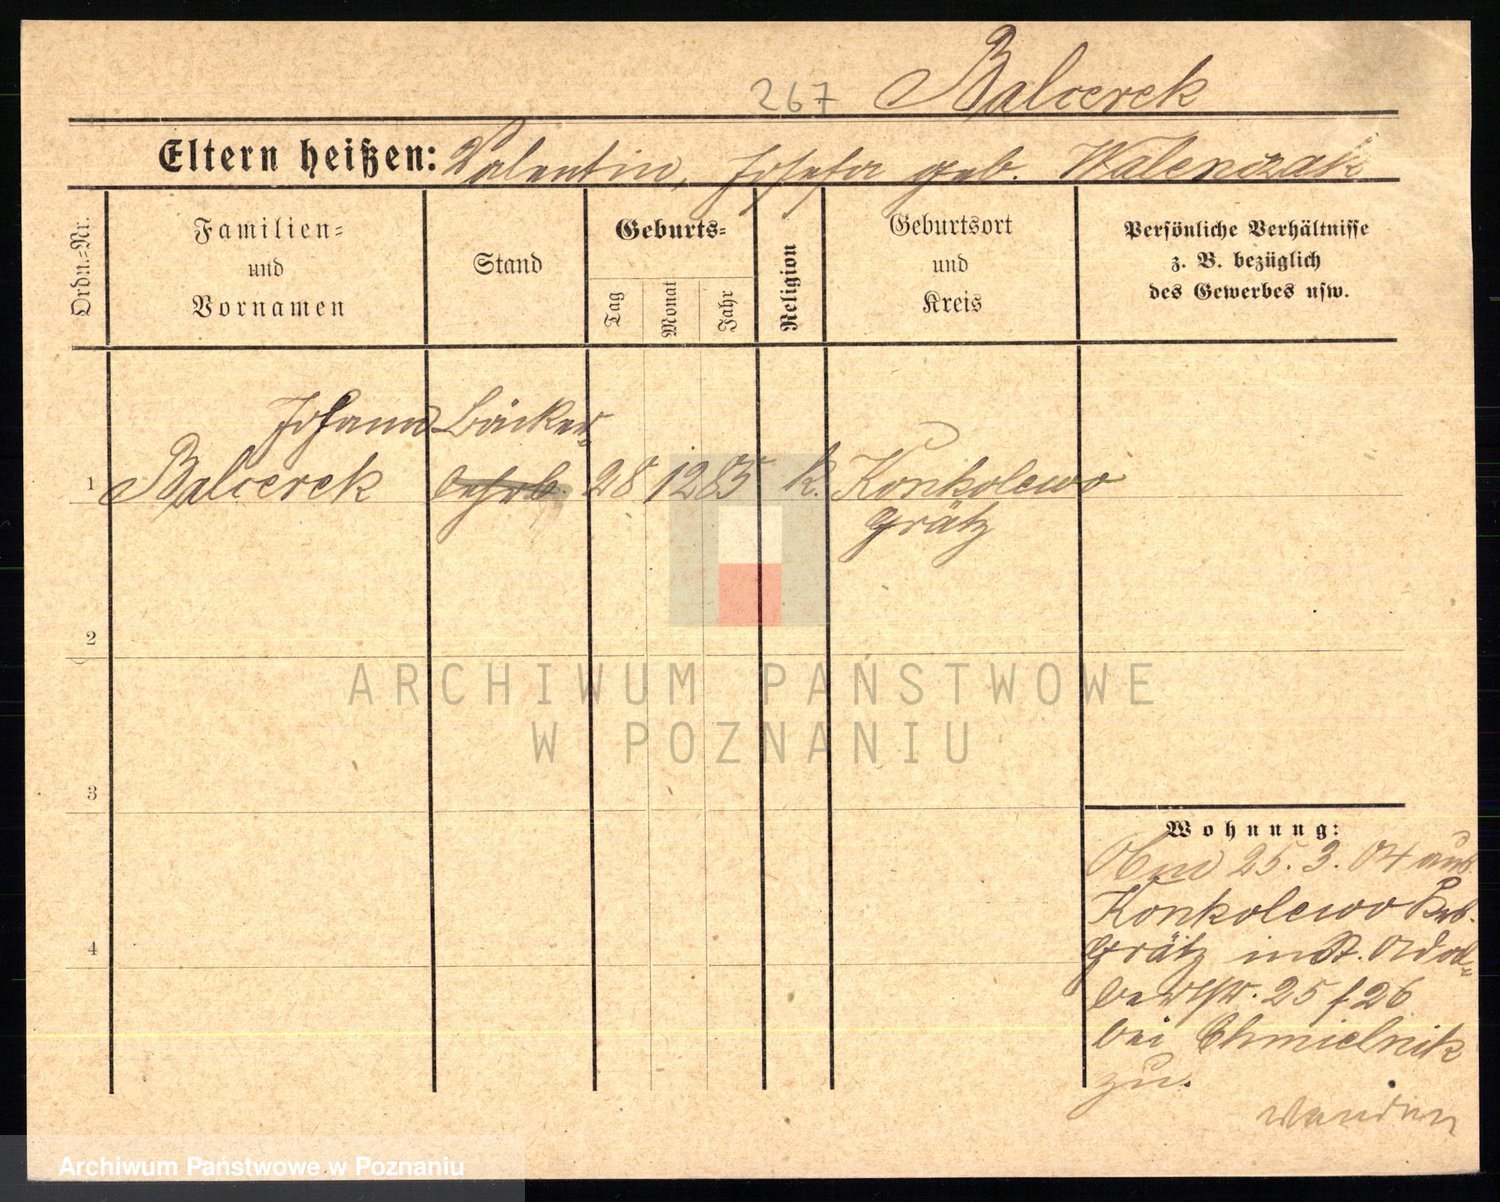 267 Balcerek
Eltern heißen: Valentin, Josefa geb. Walenczak
Ordn.-Nr.
Familien-
und
Vornamen
Stand
Geburts-
Tag
Monat
Jahr
Religion
Geburtsort
und
Kreis
Persönliche Verhältnisse
z. B. bezüglich
des Gewerbes usw.
Johann Bäcker-
1 Balcerek lehrl. 28 12 85 k. Konkolewo
Grätz
2
3
4
Wohnung:
25. 3. 04 aus
Konkolewo
Grätz in St.
25/26
bei Chmielnik
zu.
ARCHIWUM PAŃSTWOWE
W POZNANIU
Archiwum Państwowe w Poznaniu